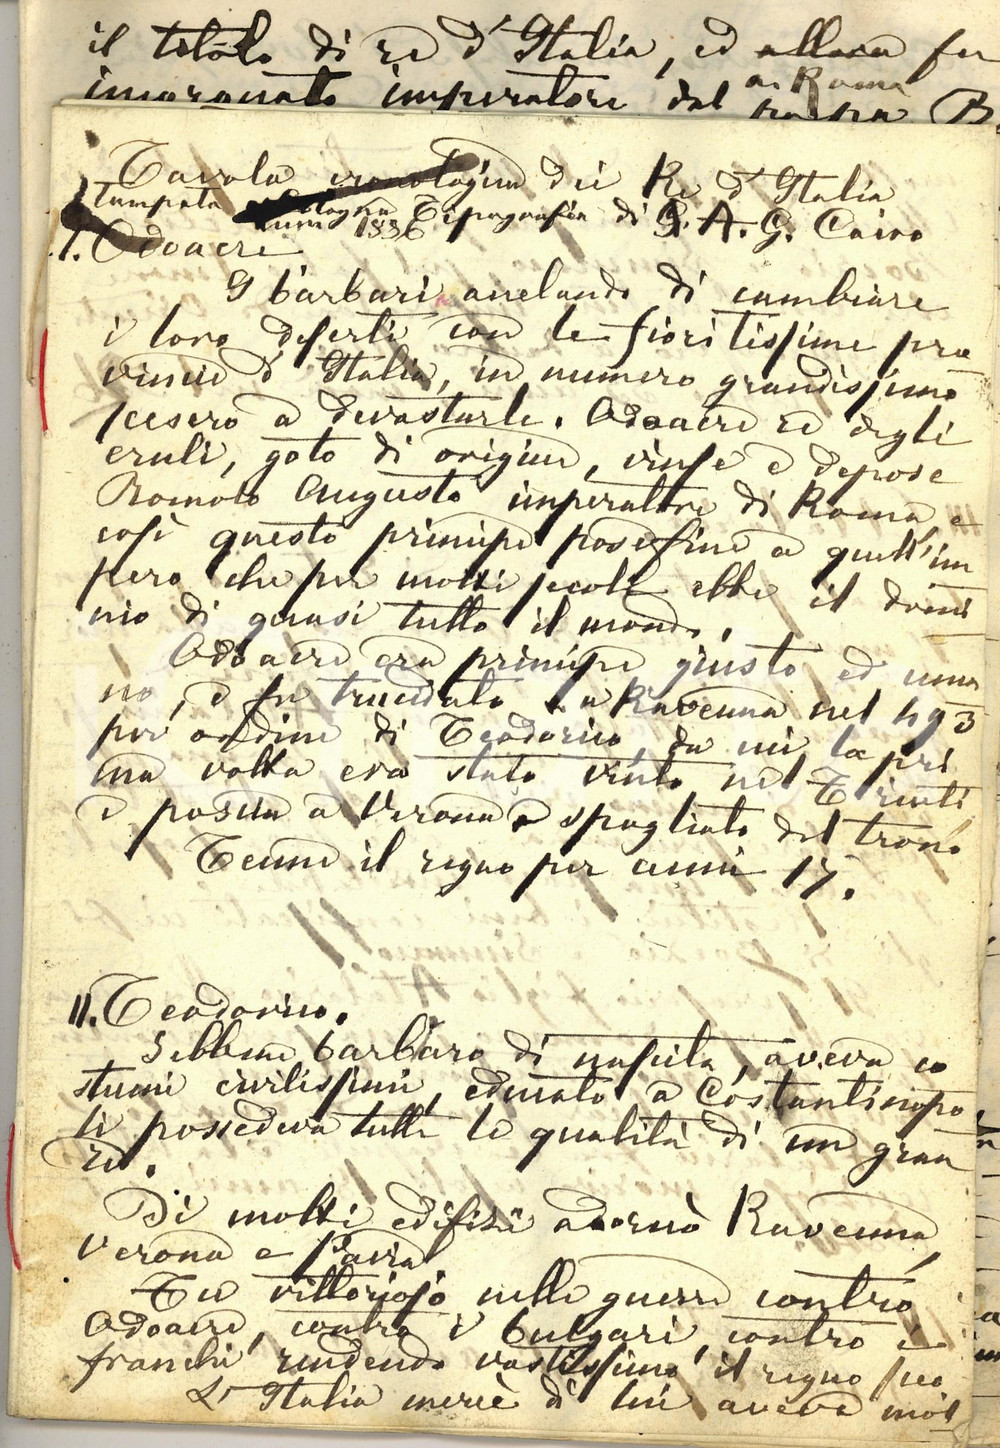 il titolo di re d'Italia, ed allora fu
a Roma
incoronato imperatore dal papa B.
Tavola cronologica dei Re d'Italia
stampata 1836 Tipografia di G. A. G. Cairo
I. Odoacre
I barbari anelando di cambiare
i loro deserti con le fioritissime pro
vincie d'Italia, in numero grandissimo
scesero a devastarle. Odoacre re degli
eruli, goto di origine, vinse e depose
Romolo Augusto imperatore di Roma, e
così questo principe pose fine a quell'im
pero che per molti secoli ebbe il domi
nio di quasi tutto il mondo.
Odoacre era principe giusto ed uma
no, e fu trucidato in Ravenna nel 493
per ordine di Teodorico, da cui la pri
ma volta era stato vinto nel
e poscia a Verona e spogliato del trono
Tenne il regno per anni 17.
II. Teodorico.
Sebbene barbaro di nascita, aveva co
stumi civilissimi, educato a Costantinopo
li possedeva tutte le qualità di un gran
re.
Di molti edifizi adornò Ravenna,
Verona e Pavia
Fu vittorioso nelle guerre contro
Odoacre, contro i bulgari, contro i
franchi rendendo vastissimo il regno suo
L'Italia mercè di lui aveva mol